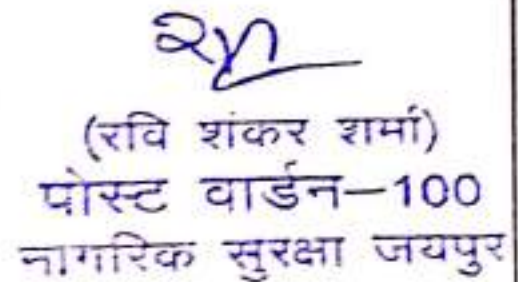 (रवि शंकर शर्मा)
पोस्ट वार्डन–100
नागरिक सुरक्षा जयपुर